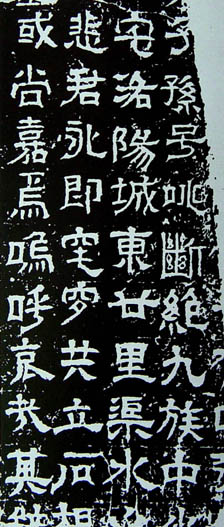 子孫号咷斷絶九族中
宅洛陽城東廿里渠水
悲君永即窀穸共立石
或尚嘉焉嗚呼哀哉其